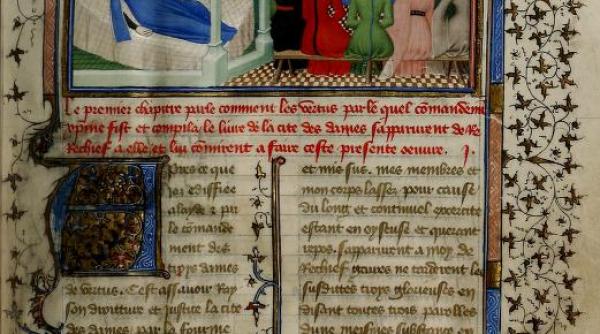 Le premier chapitre parle comment les vertus par le quel comandement
xpine fist et compila le liure de la cite des dames sapparurent de Re
Rechief a elle et lui comirent a faire ceste presente oeuure. J.
Apres ce que
jez ediffiee
a layde et par
le comande
ment des
troys dames
de vertus. Cest assauoir Ray
son droitture et justice la cite
des dames par la fourme
et mie sus. mes membres et
mon corps lassez pour cause
du long et continuel exercite
estant en oyseuse et querant
repos. sapparurent a moy de
Rechief gaires ne tardirent les
susdittes troys glorieuses en
disant toutes troys parolles
dune mesmes substance en